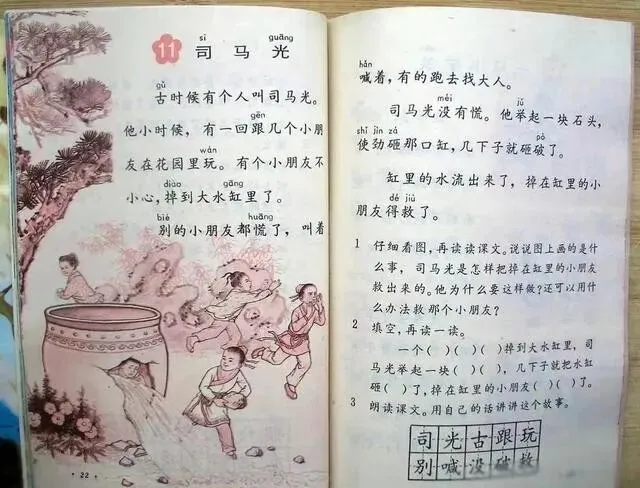 sī guāng
11 司马光
gǔ
古时候有个人叫司马光。
gēn
他小时候，有一回跟几个小朋
wán
友在花园里玩。有个小朋友不
diào gāng
小心，掉到大水缸里了。
bié huāng
别的小朋友都慌了，叫着
22
hǎn
喊着，有的跑去找大人。
méi jǔ
司马光没有慌。他举起一块石头，
shǐ jìn zá pò
使劲砸那口缸，几下子就砸破了。
缸里的水流出来了，掉在缸里的小
dé jiù
朋友得救了。
1 仔细看图，再读读课文。说说图上画的是什
么事，司马光是怎样把掉在缸里的小朋友
救出来的。他为什么要这样做？还可以用什
么办法救那个小朋友？
2 填空，再读一读。
一个( )( )( )掉到大水缸里，司
马光举起一块( )( )，几下子就把水缸
砸( )了，掉在缸里的小朋友( )( )了。
3 朗读课文。用自己的话讲讲这个故事。
司光古跟玩
别喊没破救